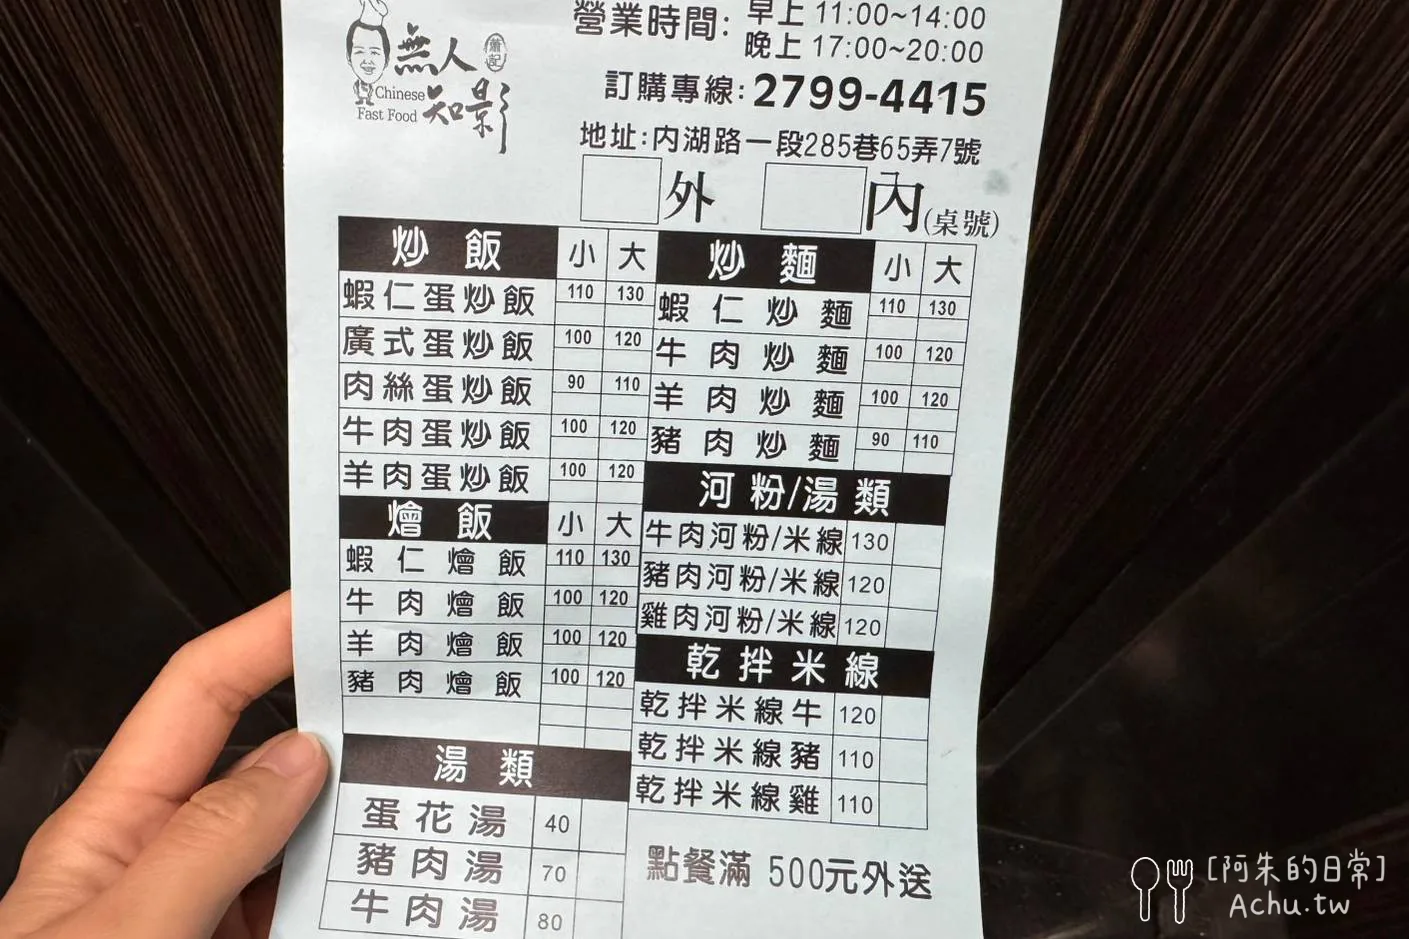 無人知影
蕭記
Chinese
Fast Food
營業時間: 早上 11:00~14:00
晚上 17:00~20:00
訂購專線: 2799-4415
地址:內湖路一段285巷65弄7號
外 內(桌號)
炒飯 小 大
蝦仁蛋炒飯 110 130
廣式蛋炒飯 100 120
肉絲蛋炒飯 90 110
牛肉蛋炒飯 100 120
羊肉蛋炒飯 100 120
燴飯 小 大
蝦仁燴飯 110 130
牛肉燴飯 100 120
羊肉燴飯 100 120
豬肉燴飯 100 120
湯類
蛋花湯 40
豬肉湯 70
牛肉湯 80
炒麵 小 大
蝦仁炒麵 110 130
牛肉炒麵 100 120
羊肉炒麵 100 120
豬肉炒麵 90 110
河粉/湯類
牛肉河粉/米線 130
豬肉河粉/米線 120
雞肉河粉/米線 120
乾拌米線
乾拌米線牛 120
乾拌米線豬 110
乾拌米線雞 110
點餐滿 500元外送
[阿朱的日常]
Achu.tw